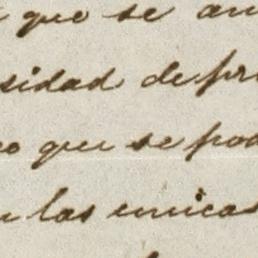 que se an
sidad de pr
o que se pod
las unicas